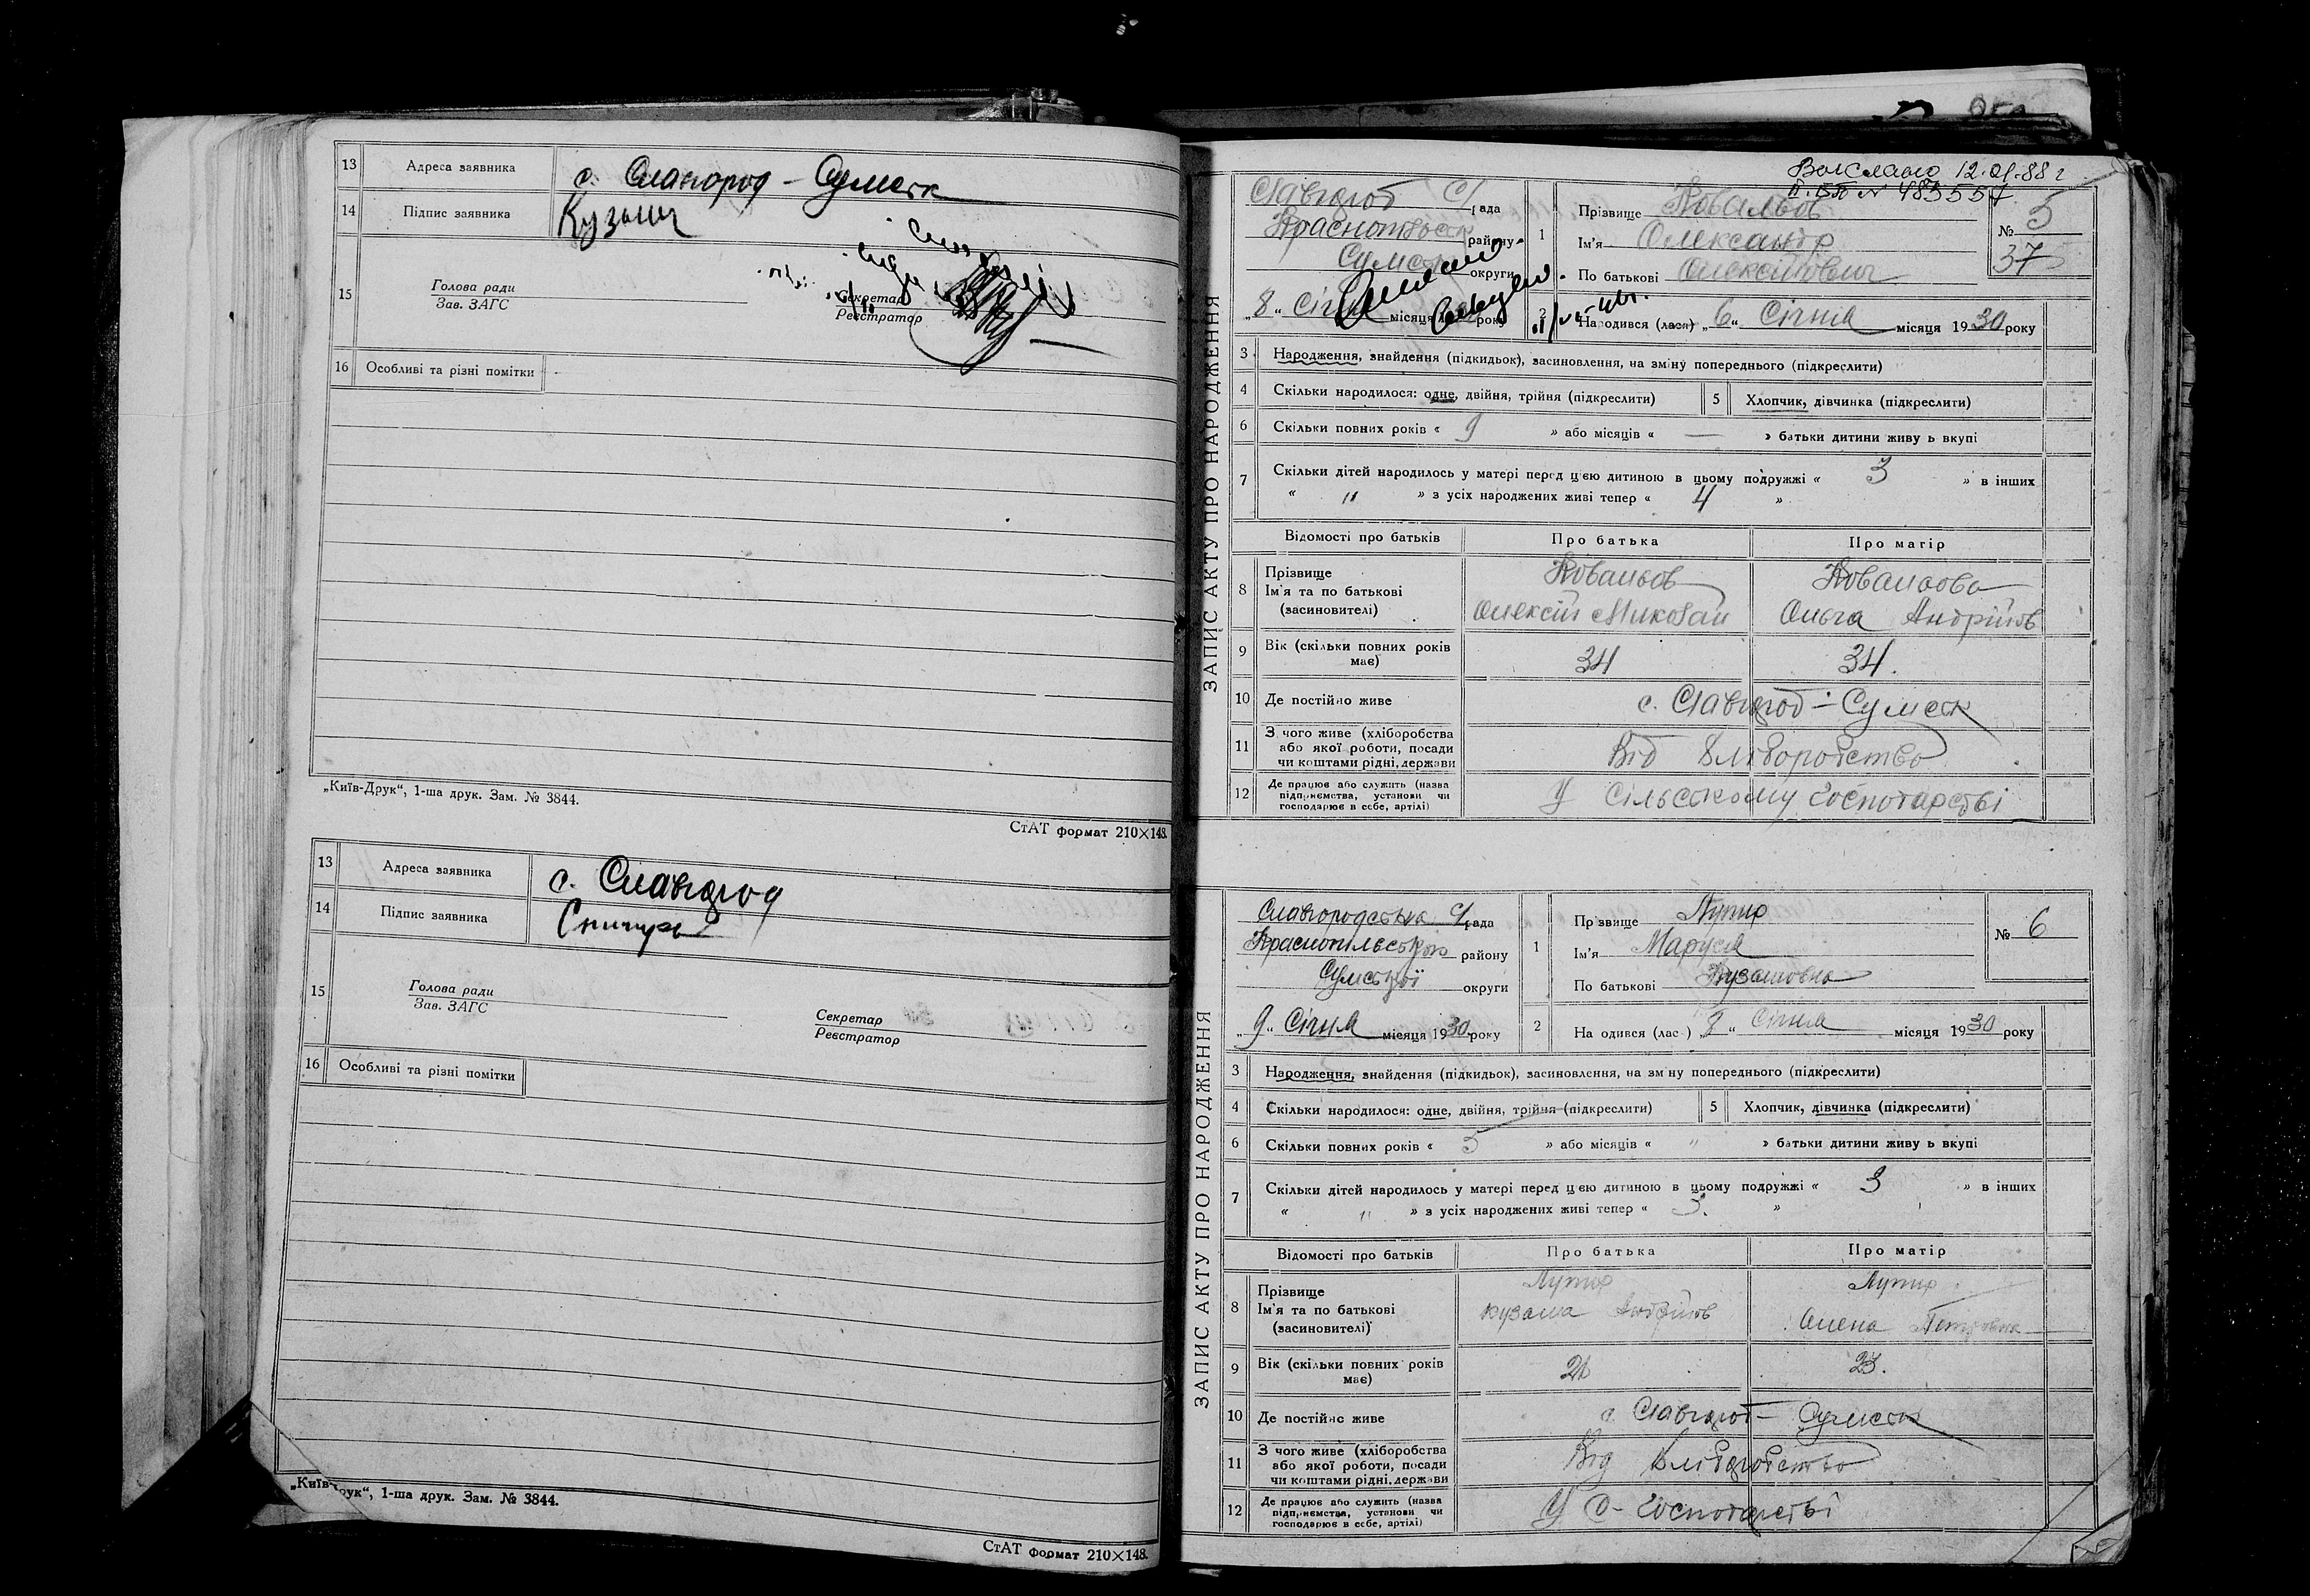 13 Адреса заявника с. Славгород - Сумськ
14 Підпис заявника Кузьма
15 Голова ради
Зав. ЗАГС
Секретар
Реєстратор
16 Особливі та різні помітки
„Київ-Друк“, 1-ша друк. Зам. № 3844.
СтАТ формат 210×148.
13 Адреса заявника с. Славгород
14 Підпис заявника
15 Голова ради
Зав. ЗАГС
Секретар
Реєстратор
16 Особливі та різні помітки
„Київ-Друк“, 1-ша друк. Зам. № 3844.
СтАТ формат 210×148.
12.01.88 г
№ 483557
ЗАПИС АКТУ ПРО НАРОДЖЕННЯ
Славгород С/рада
району
Сумськ округи
„8“ Січня місяця року
1 Прізвище Ковальов
Ім'я Олександр
По батькові Олексійович
№ 5
37
2 Народився (лася) „6“ Січня місяця 1930 року
3 Народження, знайдення (підкидьок), засиновлення, на зміну попереднього (підкреслити)
4 Скільки народилося: одне, двійня, трійня (підкреслити) 5 Хлопчик, дівчинка (підкреслити)
6 Скільки повних років « 9 » або місяців « — » батьки дитини живу ь вкупі
7 Скільки дітей народилось у матері перед цією дитиною в цьому подружжі « 3 » в інших
« " » з усіх народжених живі тепер « 4 »
Відомості про батьків Про батька Про матір
8 Прізвище Ковальов Ковальова
Ім'я та по батькові
(засиновителі) Олексій Миколай Ольга Андріїв
9 Вік (скільки повних років має) 34 34.
10 Де постійно живе с. Славгород - Сумськ
11 З чого живе (хліборобства
або якої роботи, посади
чи коштами рідні, держави Від Хліборобство
12 Де працює або служить (назва
підприємства, установи чи
господарює в себе, артілі) У сільському господарстві
ЗАПИС АКТУ ПРО НАРОДЖЕННЯ
Славгородська С/рада
Краснопільського району
Сумської округи
„9“ Січня місяця 1930 року
1 Прізвище
Ім'я Маруся
По батькові Кузьмовна
№ 6
2 На одився (лас ) Січня місяця 1930 року
3 Народження, знайдення (підкидьок), засиновлення, на зм ну попереднього (підкреслити)
4 Скільки народилося: одне, двійня, трійня (підкреслити) 5 Хлопчик, дівчинка (підкреслити)
6 Скільки повних років « 5 » або місяців « " » батьки дитини живу ь вкупі
7 Скільки дітей народилось у матері перед цією дитиною в цьому подружжі « 3 » в інших
« " » з усіх народжених живі тепер « 3. »
Відомості про батьків Про батька Про матір
8 Прізвище
Ім'я та по батькові
(засиновителі) Кузьма Андріїв Олена Петровна
9 Вік (скільки повних років має) 23.
10 Де постійно живе с. Славгород - Сумськ
11 З чого живе (хліборобства
або якої роботи, посади
чи коштами рідні, держави Від Хліборобство
12 Де працює або служить (назва
підприємства, установи чи
господарює в себе, артілі) У С-господарстві